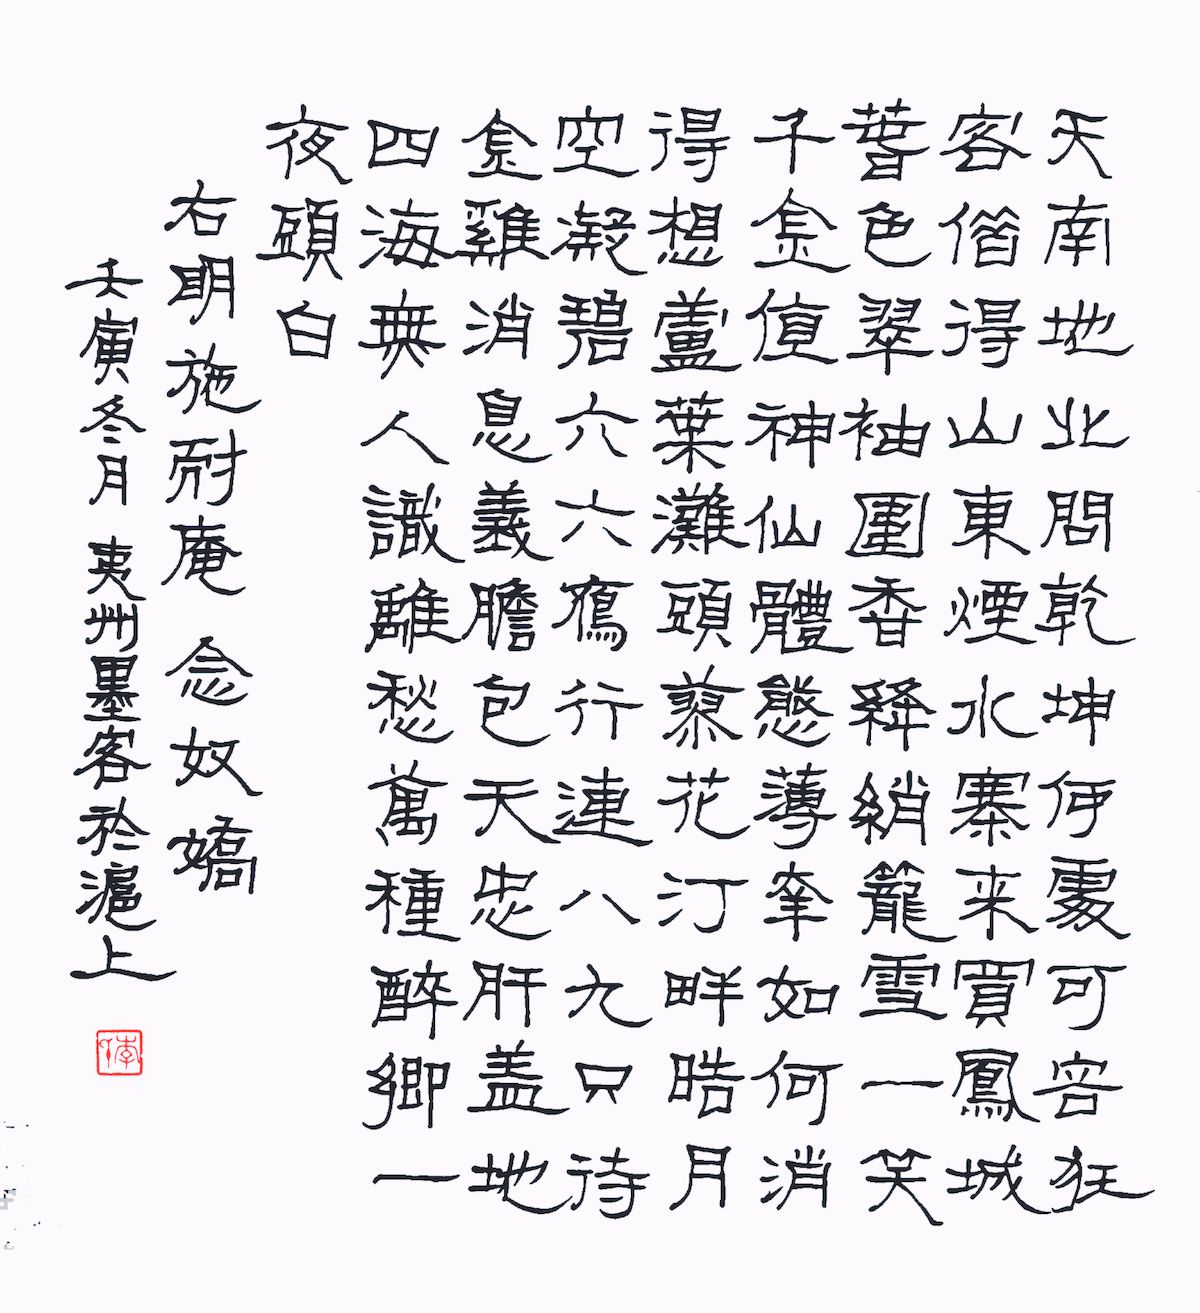 天南地北問乾坤何處可容狂
客借得山東煙水寨来買鳳城
春色翠袖圍香絳綃籠雪一笑
千金值神仙體態薄幸如何消
得想蘆葉灘頭蓼花汀畔皓月
空凝碧六六鴈行連八九只待
金雞消息義膽包天忠肝盖地
四海無人識離愁萬種醉鄉一
夜頭白
右明施耐庵 念奴嬌
壬寅冬月 夷州墨客於滬上